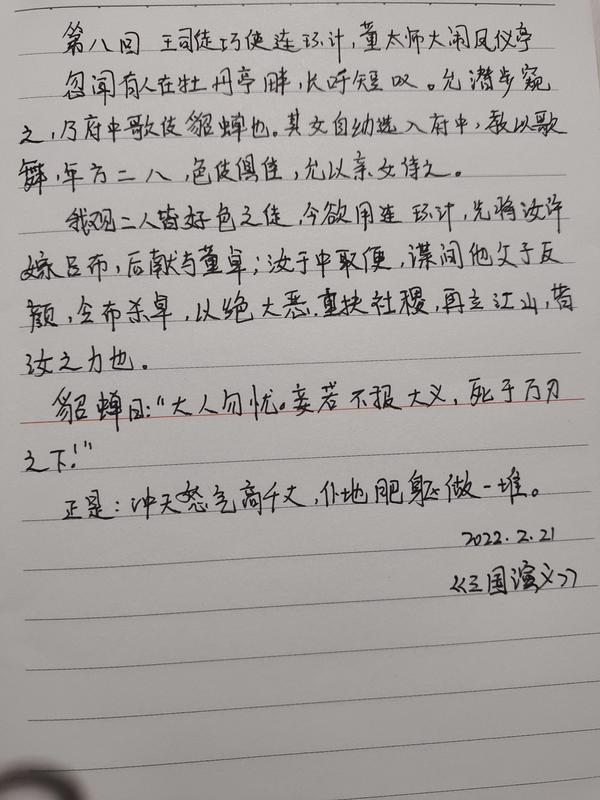 第八回 王司徒巧使连环计，董太师大闹凤仪亭
忽闻有人在牡丹亭畔，长吁短叹。允潜步窥
之，乃府中歌伎貂蝉也。其女自幼选入府中，教以歌
舞，年方二八，色伎俱佳，允以亲女待之。
我观二人皆好色之徒，今欲用连环计，先将汝许
嫁吕布，后献与董卓；汝于中取便，谍间他父子反
颜，令布杀卓，以绝大恶。重扶社稷，再立江山，皆
汝之力也。
貂蝉曰：“大人勿忧。妾若不报大义，死于万刃
之下！”
正是：冲天怒气高千丈，仆地肥躯做一堆。
2022.2.21
《三国演义》